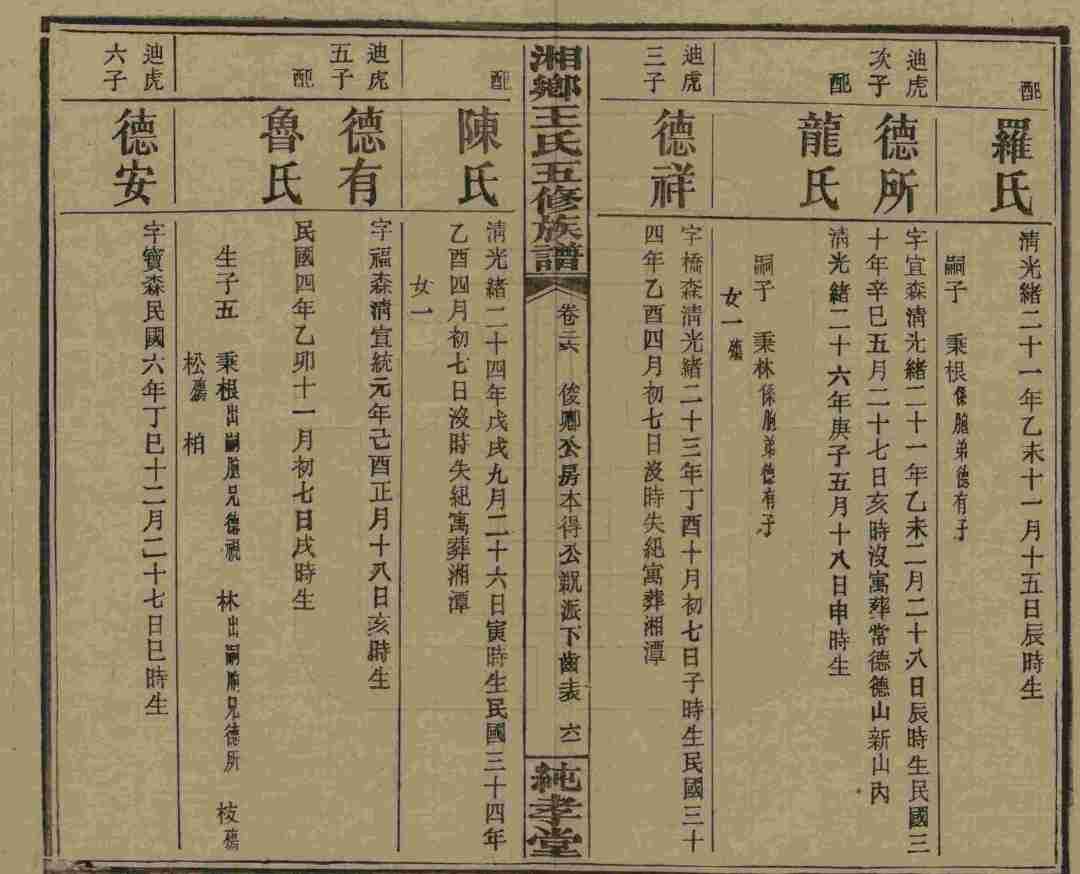 配
羅氏
清光緒二十一年乙未十一月十五日辰時生
嗣子 秉根係胞弟德有子
迪虎
次子
德所
字宜森清光緒二十一年乙未二月二十八日辰時生民國三
十年辛巳五月二十七日亥時沒寓葬常德德山新山內
配
龍氏
清光緒二十六年庚子五月十八日申時生
嗣子 秉林係胞弟德有子
女一殤
迪虎
三子
德祥
字橋森清光緒二十三年丁酉十月初七日子時生民國三十
四年乙酉四月初七日沒時失紀寓葬湘潭
湘鄉王氏五修族譜
卷三六 俊卿公房本得公親派下齒表 六一
純孝堂
配
陳氏
清光緒二十四年戊戌九月二十六日寅時生民國三十四年
乙酉四月初七日沒時失紀寓葬湘潭
女一
迪虎
五子
德有
字福森清宣統元年己酉正月十八日亥時生
配
魯氏
民國四年乙卯十一月初七日戌時生
生子五 秉根出嗣胞兄德視 林出嗣胞兄德所 枝殤
松殤 柏
迪虎
六子
德安
字寶森民國六年丁巳十二月二十七日巳時生